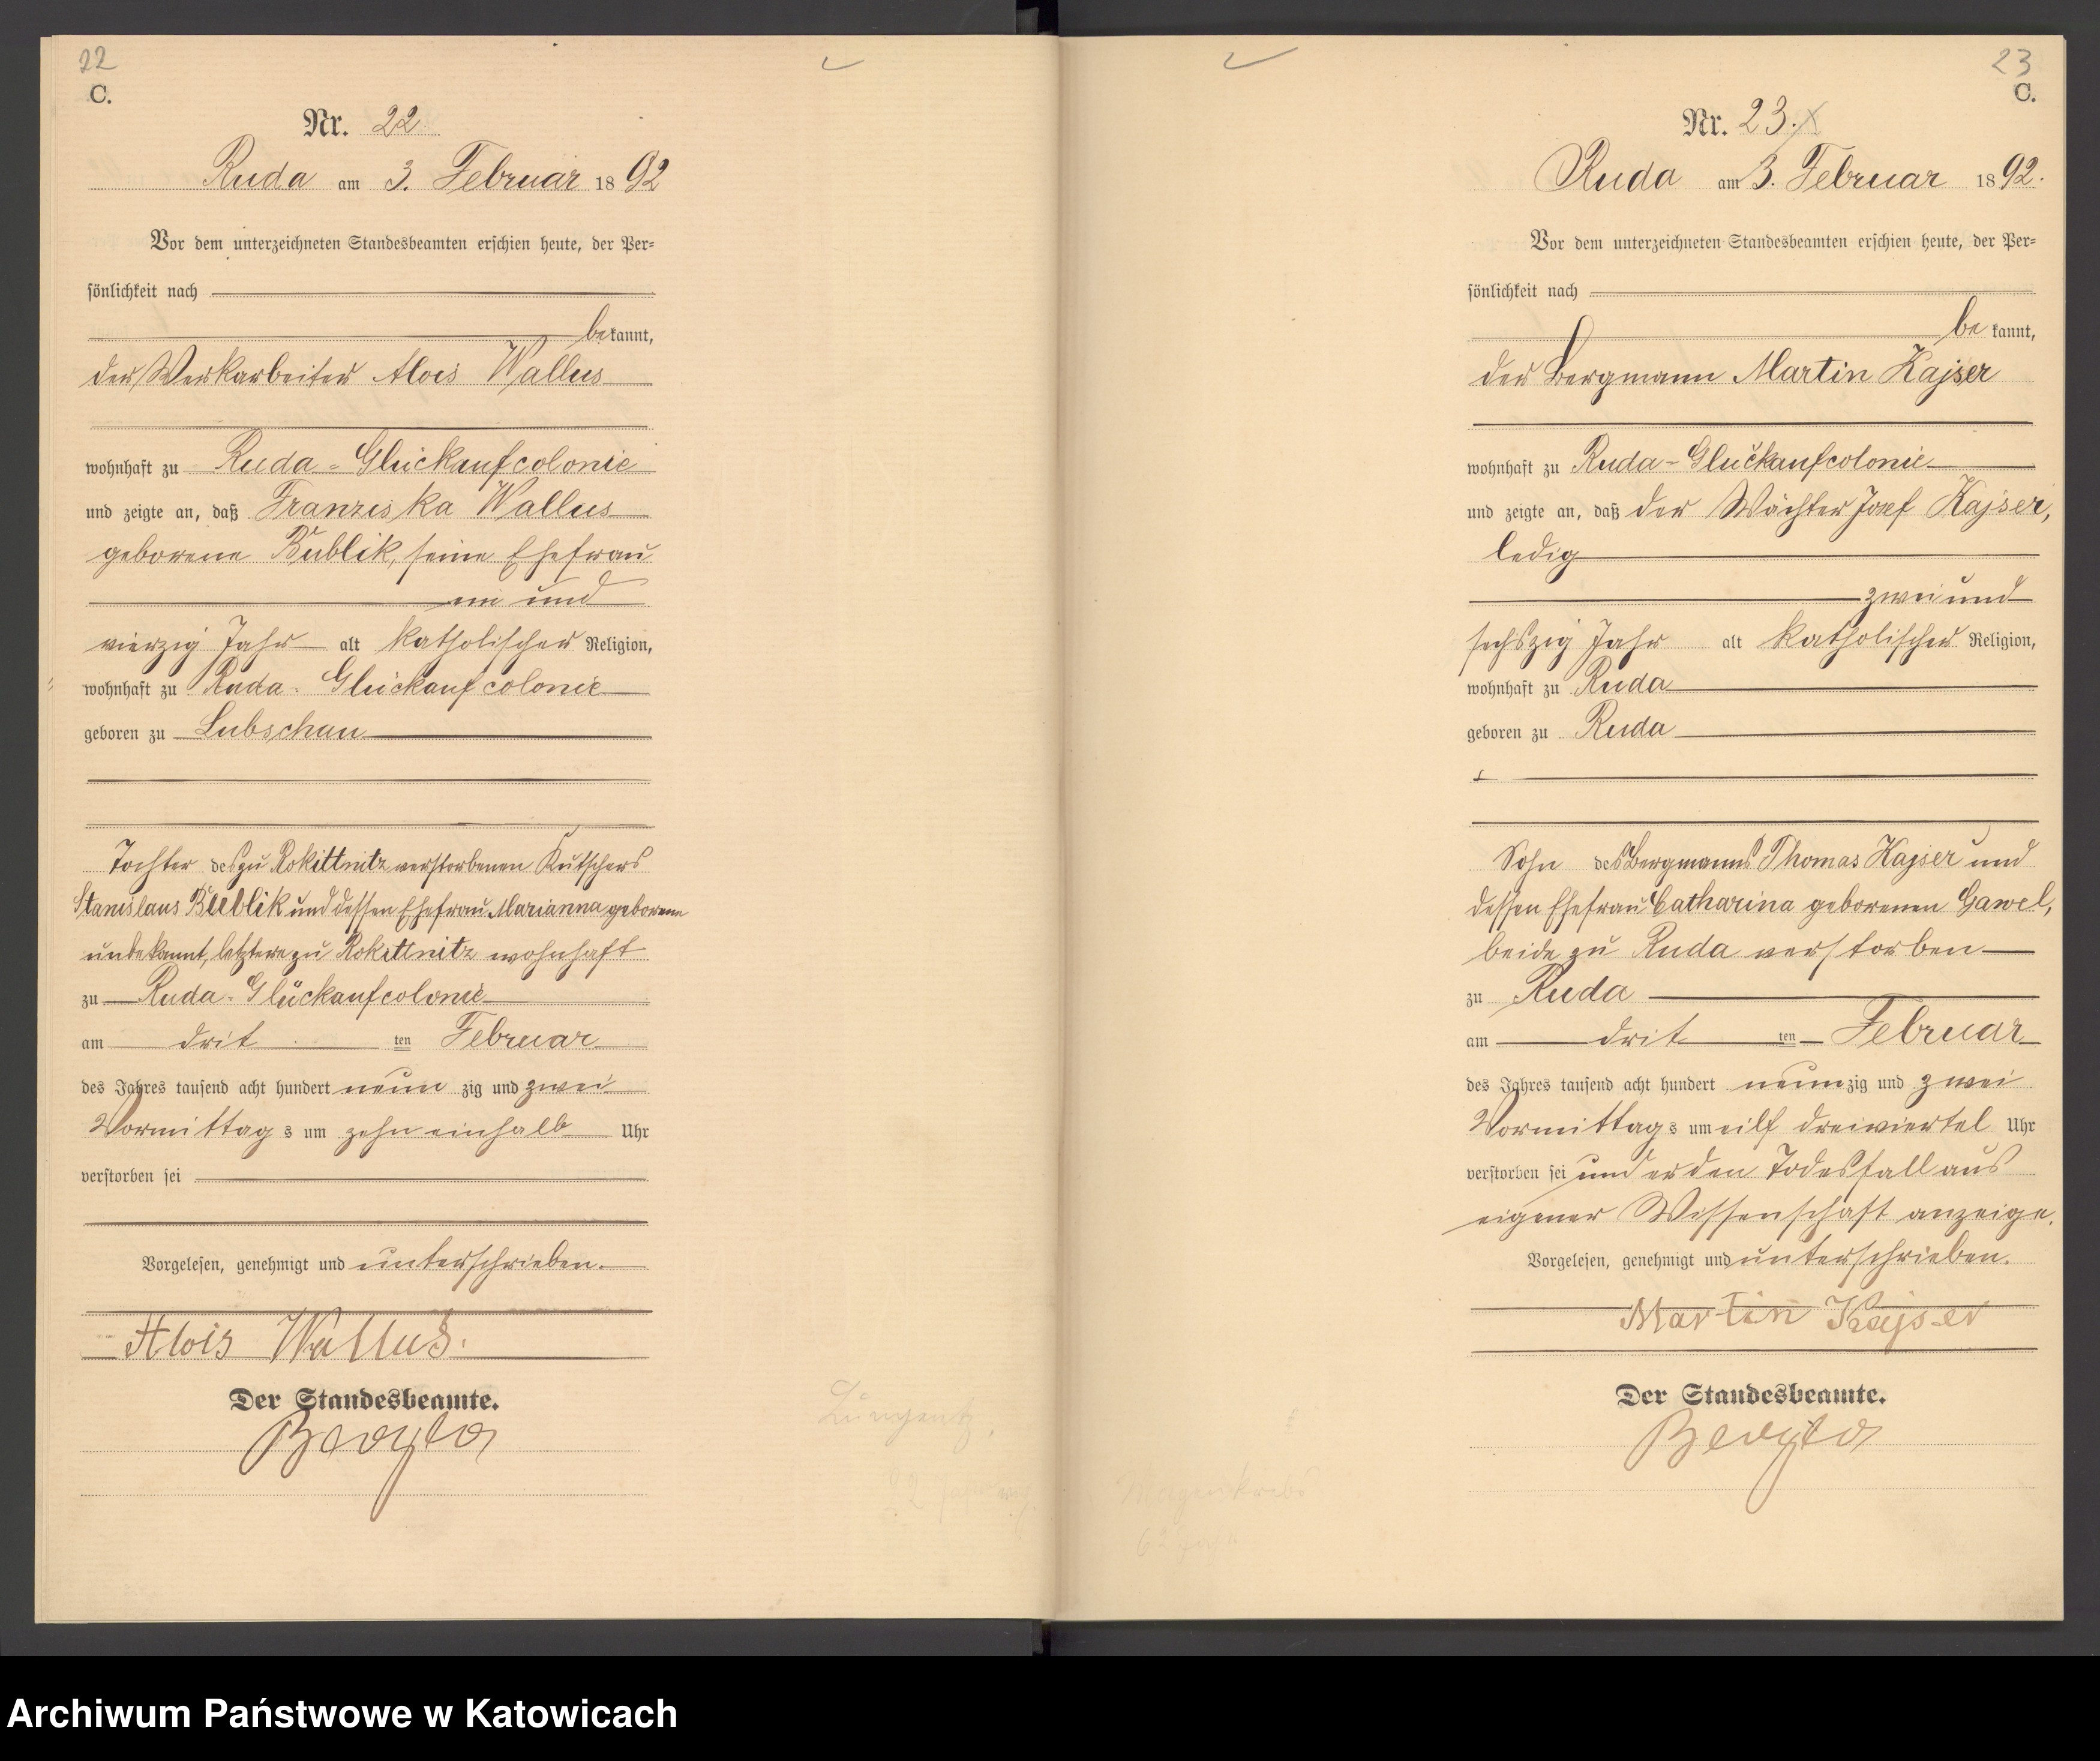 22
C.
Nr. 22
Ruda am 3. Februar 1892
Vor dem unterzeichneten Standesbeamten erschien heute, der Per=
sönlichkeit nach
bekannt,
der Werkarbeiter Alois Wallus
wohnhaft zu Ruda-Glückaufcolonie
und zeigte an, daß Franziska Wallus
geborene Bublik, seine Ehefrau
ein und
vierzig Jahr alt katholischer Religion,
wohnhaft zu Ruda-Glückaufcolonie
geboren zu Lubschau
Tochter des zu Rokittnitz verstorbenen Kutschers
Stanislaus Bublik und dessen Ehefrau Marianna geborene
unbekannt, letztere zu Rokittnitz wohnhaft
zu Ruda-Glückaufcolonie
am dritten Februar
des Jahres tausend acht hundert neunzig und zwei
Vormittags um zehn einhalb Uhr
verstorben sei
Vorgelesen, genehmigt und unterschrieben.
Alois Wallus.
Der Standesbeamte.
23
C.
Nr. 23.
Ruda am 3. Februar 1892.
Vor dem unterzeichneten Standesbeamten erschien heute, der Per=
sönlichkeit nach
bekannt,
der Bergmann Martin Kajser
wohnhaft zu Ruda-Glückaufcolonie
und zeigte an, daß der Wächter Josef Kajser,
ledig
zwei und
sechszig Jahr alt katholischer Religion,
wohnhaft zu Ruda
geboren zu Ruda
Sohn des Bergmanns Thomas Kajser und
dessen Ehefrau Catharina geborenen Gawel,
beide zu Ruda verstorben
zu Ruda
am dritten Februar
des Jahres tausend acht hundert neunzig und zwei
Vormittags um eilf dreiviertel Uhr
verstorben sei und er den Todesfall aus
eigener Wissenschaft anzeige.
Vorgelesen, genehmigt und unterschrieben.
Martin Kajser
Der Standesbeamte.
Magenkrebs
62 Jahr
Archiwum Państwowe w Katowicach